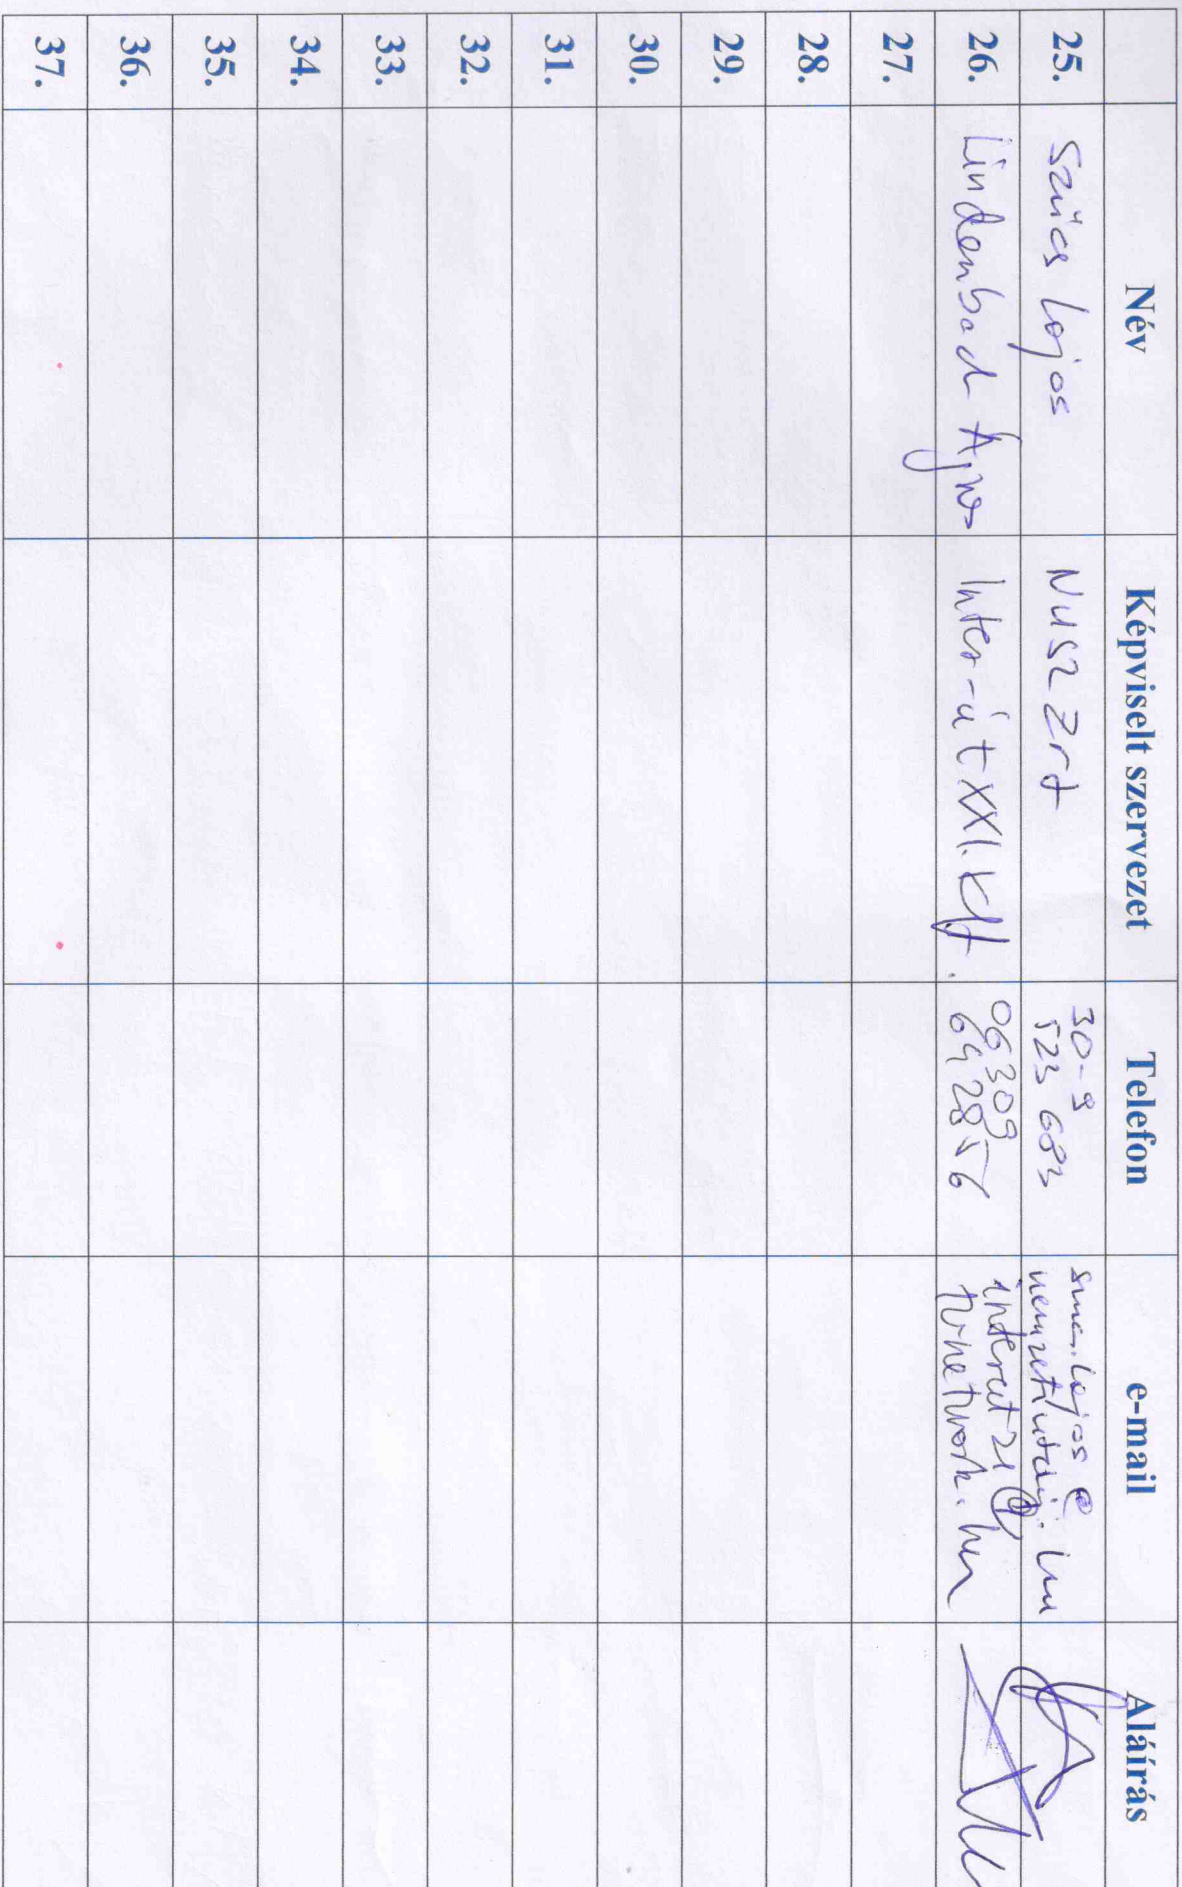 Név Képviselt szervezet Telefon e-mail Aláírás
25. Szűcs Lajos NUSZ Zrt 30-9
523 683
26. Lindenbach Ágnes Inter-út XXI. Kft. 06309
642856 interut21@
tvnetwork.hu
27.
28.
29.
30.
31.
32.
33.
34.
35.
36.
37.